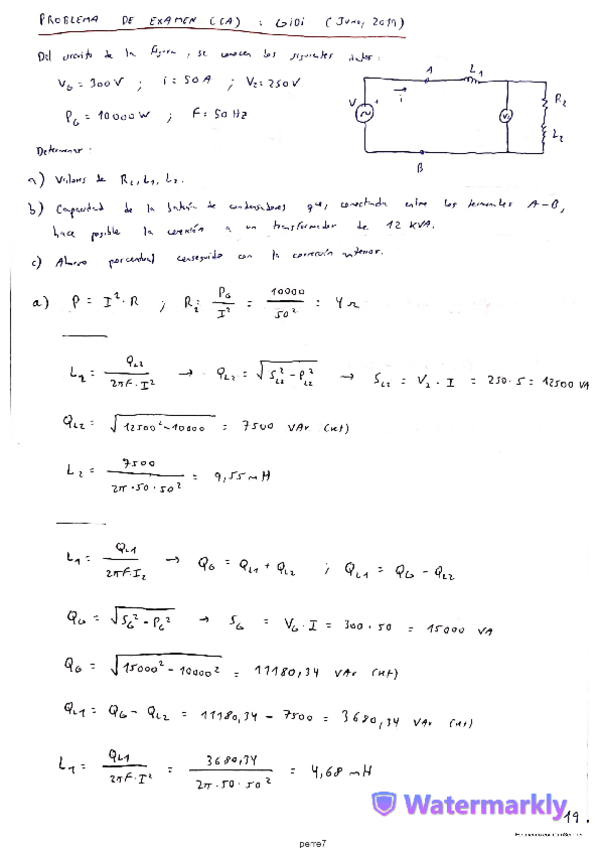 PROBLEMA DE EXAMEN (CA) : GIDI (Juno, 2019)
Del circuito de la figura, se conocen los siguientes datos:
VG = 300V ; i = 50A ; V2 = 250V
PG = 10000W ; F = 50Hz
1 L1
i
V
+
R2
L2
B
Determinar:
a) Valores de R2, L1, L2.
b) Capacidad de la batería de condensadores que, conectada entre los terminales A-B,
hace posible la conexión a un transformador de 12 KVA.
c) Ahorro porcentual conseguido con la corrección anterior.
a) P = I² · R ; R2 = PG / I² = 10000 / 50² = 4 Ω
L2 = QL2 / 2πF·I² → QL2 = √(SL2² - PL2²) → SL2 = V2 · I = 250·5 = 12500 VA
QL2 = √(12500² - 10000) = 7500 VAr
L2 = 7500 / 2π·50·50² = 9,55 mH
L1 = QL1 / 2πF·I2 → QG = QL1 + QL2 ; QL1 = QG - QL2
QG = √(SG² - PG²) → SG = VG · I = 300·50 = 15000 VA
QG = √(15000² - 10000²) = 11180,34 VAr
QL1 = QG - QL2 = 11180,34 - 7500 = 3680,34 VAr
L1 = QL1 / 2πF·I² = 3680,34 / 2π·50·50² = 4,68 mH
Watermarkly
19.
perre7